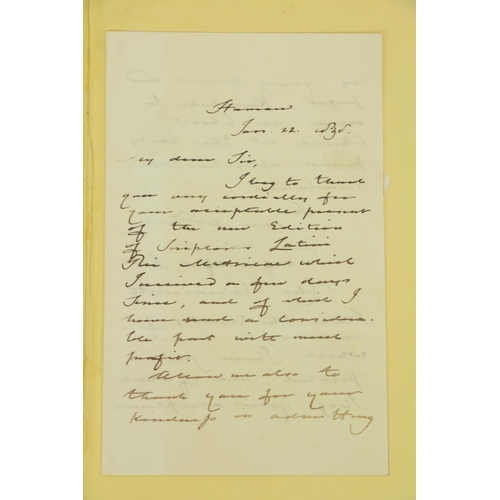 Jan. 22. 1838.
My dear Sir,
I beg to thank
you very cordially for
your acceptable present
of the new Edition
of Scriptores Latini
Rei Metricae which
I received a few days
since, and of which I
have read a considera-
ble part with much
profit.
Allow me also to
thank you for your
kindness in admitting